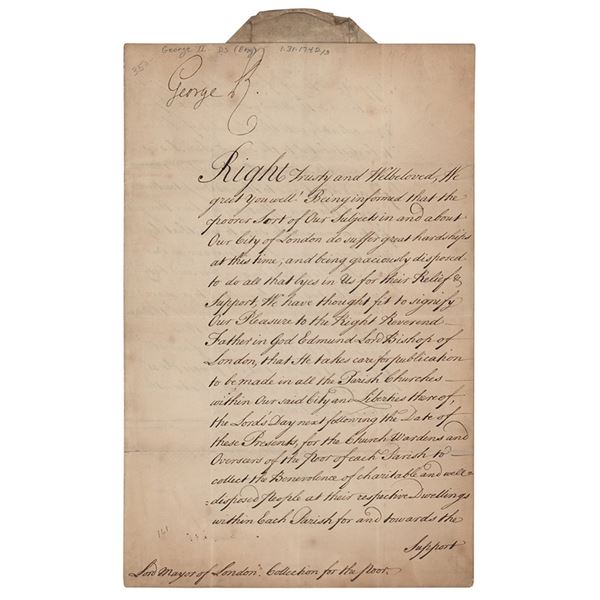 George II DS (Eng) 1.31.1742/3
350
George R.
Right Trusty and Welbeloved, We
greet You well! Being informed that the
poorer Sort of Our Subjects in and about
Our City of London do suffer great hardships
at this time, and being graciously disposed
to do all that lyes in Us for their Relief &
Support. We have thought fit to signify
Our Pleasure to the Right Reverend
Father in God Edmund Lord Bishop of
London, that He takes care for publication
to be made in all the Parish Churches
within Our said City and Liberties thereof,
the Lord's Day next following the Date of
these Presents, for the Church Wardens and
Overseers of the Poor of each Parish to
collect the Benevolence of charitable and well=
=disposed People at their respective Dwellings
within Each Parish for and towards the
Support
161
Lord Mayor of London. Collection for the Poor.